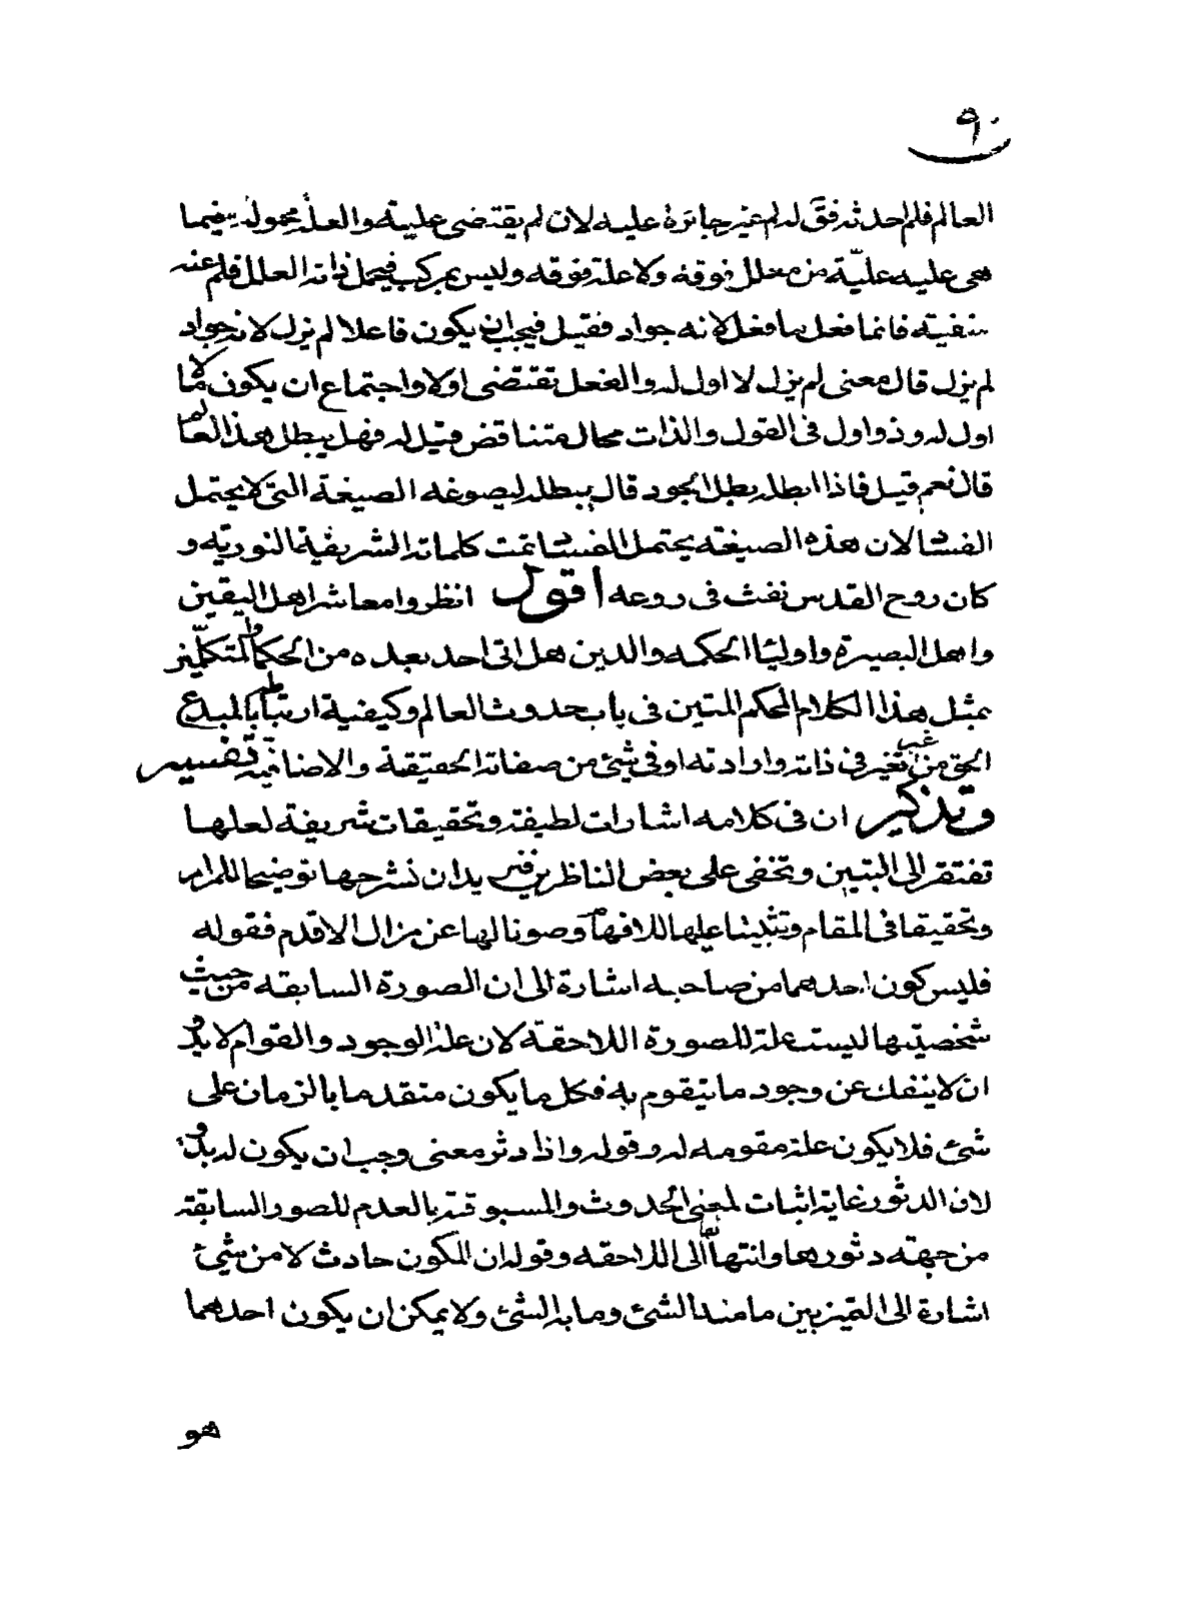 ٩٠
العالم فلم احدثه فقَّ له لم غير جائزة عليه لان لم يقتضى علية والعلة محمولة فيما
هى عليه عليّة من معلل فوقه ولا علة فوقه وليس بمركب فيحمل ذاته العلل فلم عنه
منفية فانما فعل ما فعل لانه جواد فقيل فيجب ان يكون فاعلا لم يزل لانه جواد
لم يزل قال معنى لم يزل لا اول له والفعل تقتضى اولا واجتماع ان يكون ما لا
اول له وذو اول فى القول والذات محال متناقض فقيل له فهل يبطل هذا العالم
قال نعم قيل فاذا ابطله بطل الجود قال يبطله ليصوغه الصيغة التى لا يحتمل
الفساد لان هذه الصيغة يحتمل الفساد تمت كلماته الشريفة النورية و
كان روح القدس نفث فى روعه اقول انظروا معاشر اهل اليقين
واهل البصيرة واولياء الحكمه والدين هل اتى احد بعده من الحكماء والمتكلمين
بمثل هذا الكلام المحكم المتين فى باب حدوث العالم وكيفية ارتباطه بالمبدع
الحق من غير تغير فى ذاته وارادته او فى شئ من صفاته الحقيقة والاضافية تفسير
وتذكير ان فى كلامه اشارات لطيفة وتحقيقات شريفة لعلها
تفتقر الى التبيين وتخفى على بعض الناظرين فنريد ان نشرحها توضيحا للمرام
وتحقيقا فى المقام وتثبيتا عليها للافهام وصونا لها عن مزال الاقدم فقوله
فليس كون احدهما من صاحبه اشارة الى ان الصورة السابقه من حيث
شخصيتها ليست علة للصورة اللاحقة لان علة الوجود والقوام لا بد و
ان لا ينفك عن وجود ما يتقوم به فكل ما يكون متقدما بالزمان على
شئ فلا يكون علة مقومه له وقوله واذا دثر معنى وجب ان يكون له بدو
لان الدثور غاية اثبات لمعنى الحدوث والمسبوقية بالعدم للصور السابقة
من جهته دثورها وانتهائها الى اللاحقه وقوله ان المكون حادث لا من شئ
اشارة الى التميز بين ما منه الشئ وما به الشئ ولا يمكن ان يكون احدهما
هو